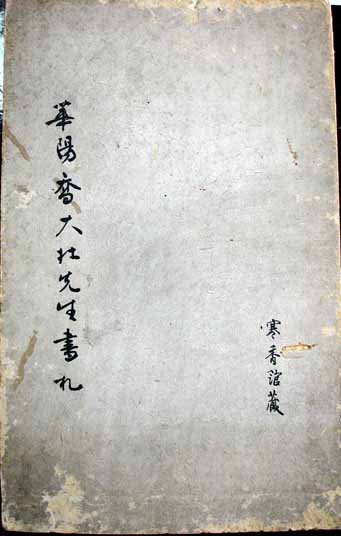 寒香館藏
華陽喬大壯先生書札